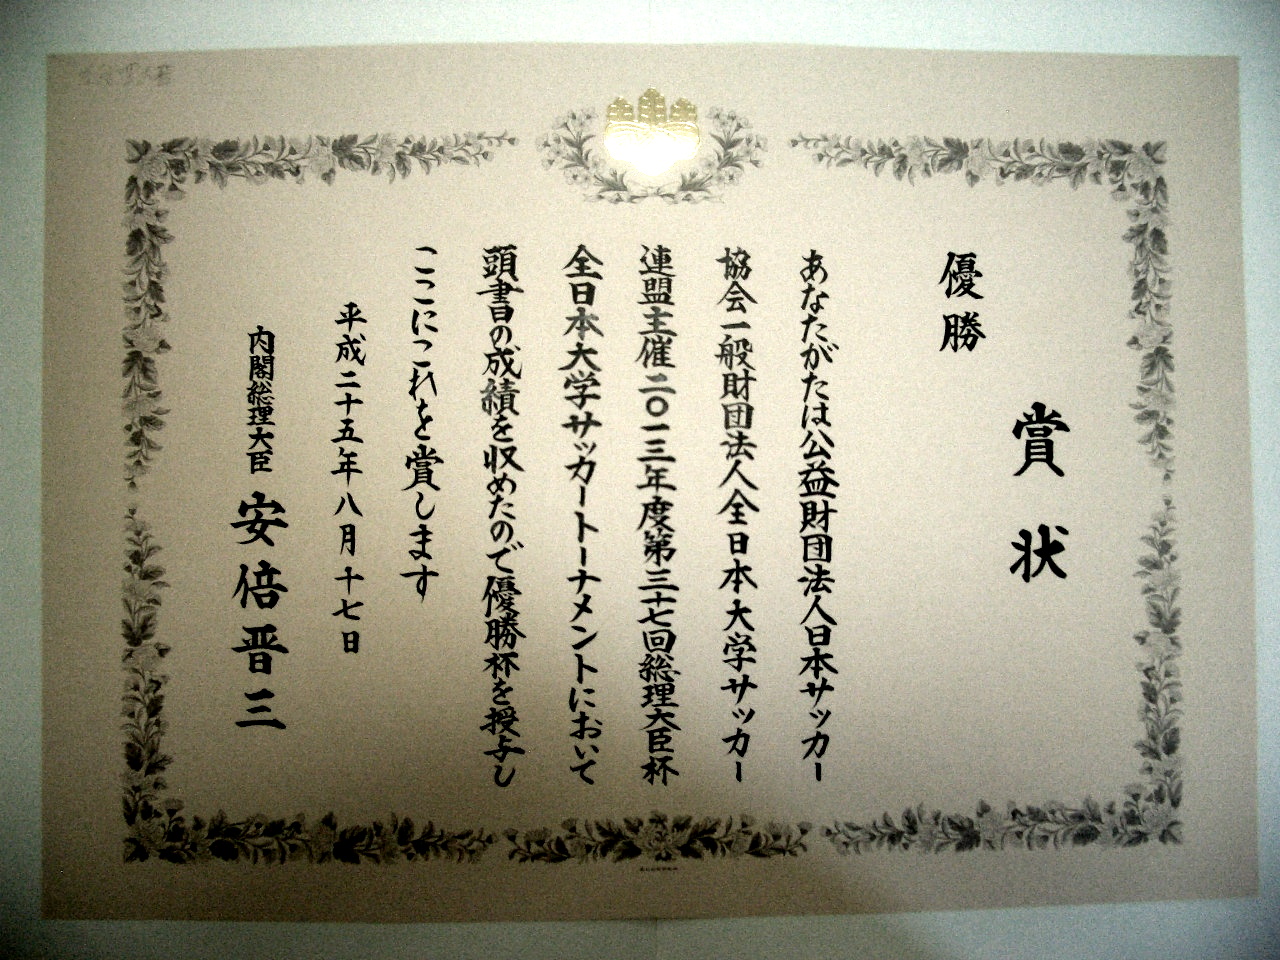 賞状
優勝
あなたがたは公益財団法人日本サッカー
協会一般財団法人全日本大学サッカー
連盟主催二〇一三年度第三十七回総理大臣杯
全日本大学サッカートーナメントにおいて
頭書の成績を収めたので優勝杯を授与し
ここにこれを賞します
平成二十五年八月十七日
内閣総理大臣 安倍晋三